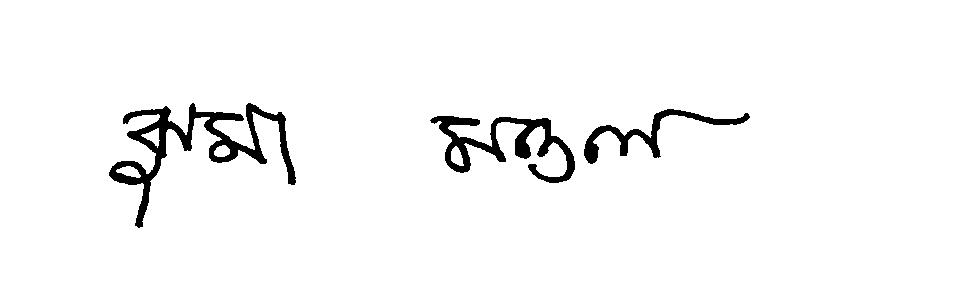 ঝুমা মণ্ডল